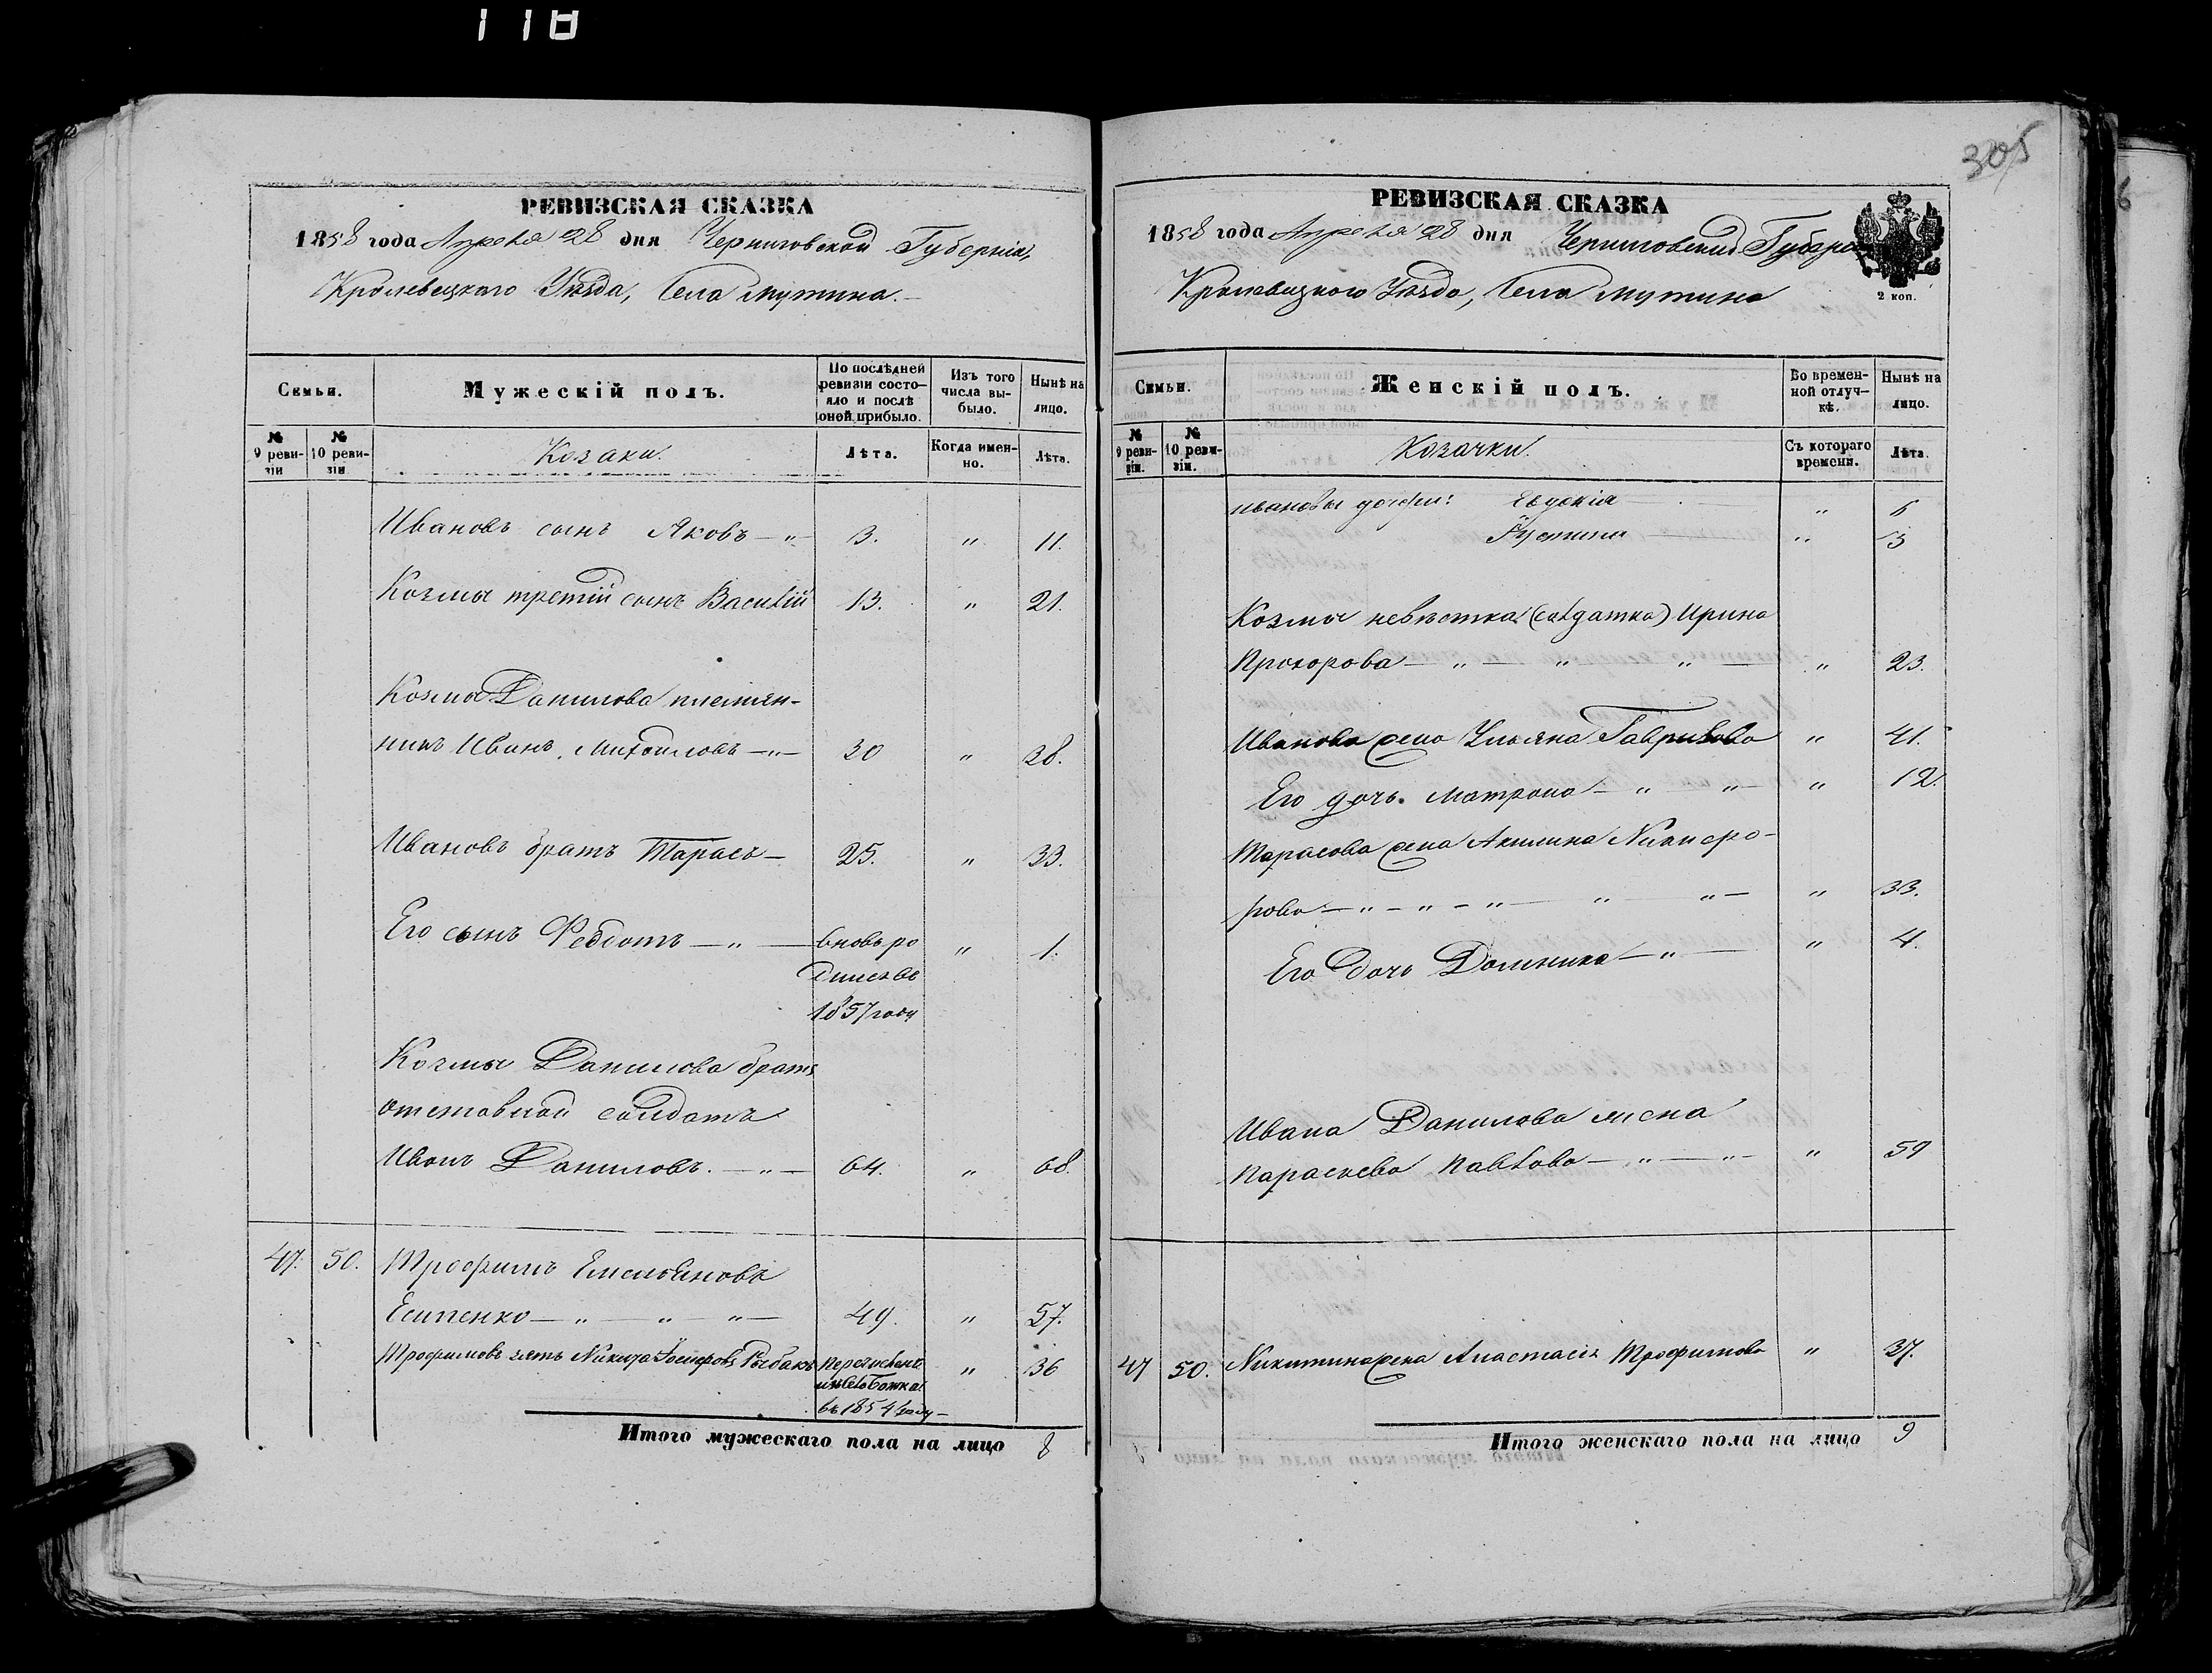 118
305
РЕВИЗСКАЯ СКАЗКА
1858 года Апреля 28 дня Черниговской Губерніи,
Кролевецкаго Уѣзда, Села Мутина.
Семьи.
Мужескій полъ.
По послѣдней ревизіи состояло и послѣ оной прибыло.
Изъ того числа выбыло.
Нынѣ на лицо.
№ 9 ревизіи
№ 10 ревизіи
Козаки.
Лѣта.
Когда именно.
Лѣта.
Ивановъ сынъ Яковъ — " 3. " 11.
Козмы третій сынъ Василій 13. " 21.
Козмы Данилова племян-
никъ Иванъ Михайловъ — " — 30 " 38.
Ивановъ братъ Тарасъ — 25. " 33.
Его сынъ Федотъ — " — вновь ро " 1.
дился въ
1857 году
Козмы Данилова братъ
отставной солдатъ
Иванъ Даниловъ. — " — 64. " 68.
47. 50. Трофимъ Емельяновъ
Есипенко — " — " — " — 49. " 57.
Трофимовъ зять Никита Іосифовъ Рыбакъ " 36
въ 1854 году —
Итого мужескаго пола на лицо 8
РЕВИЗСКАЯ СКАЗКА
1858 года Апреля 28 дня Черниговской Губерніи
Кролевецкаго Уѣзда, Села Мутина
2 коп.
Семьи.
Женскій полъ.
Во временной отлучкѣ.
Нынѣ на лицо.
№ 9 ревизіи.
№ 10 ревизіи.
Козачки.
Съ котораго времени.
Лѣта.
Ивановы дочери: Евдокія — "
Іустина — "
Козмы невѣстка (солдатка) Ирина
Прохорова — " — " " — " 23.
Иванова жена Ульяна Гаврилова " 41.
Его дочь Матрона — " — " — " 12.
Тарасова жена Акилина Никифо-
рова — " — " — " — " " — " 33.
Его дочь Домникия — " — " 4.
Ивана Данилова жена
Параскева Павлова — " — " — " 59
47 50. Никитина жена Анастасія Трофимова " 37.
Итого женскаго пола на лицо 9